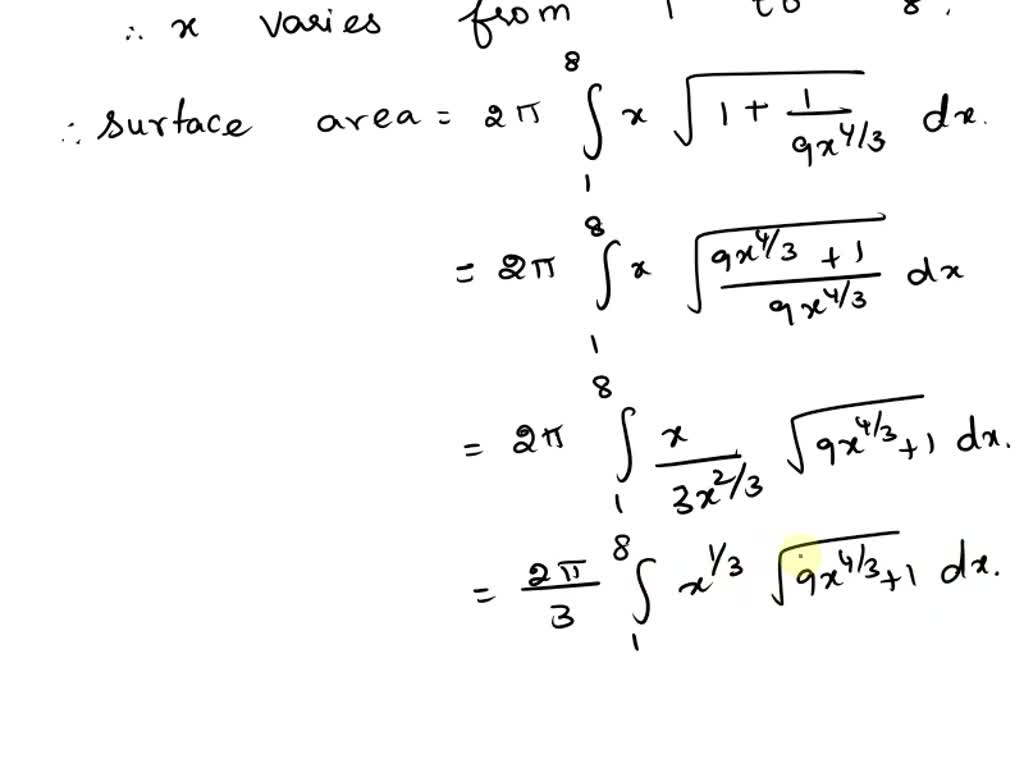 ∴ x varies from 1 to 8.
∴ surface area = 2π ∫₁⁸ x √(1 + 1/(9x^(4/3))) dx.
= 2π ∫₁⁸ x √((9x^(4/3) + 1)/(9x^(4/3))) dx
= 2π ∫₁⁸ x/(3x^(2/3)) √(9x^(4/3) + 1) dx.
= 2π/3 ∫₁⁸ x^(1/3) √(9x^(4/3) + 1) dx.